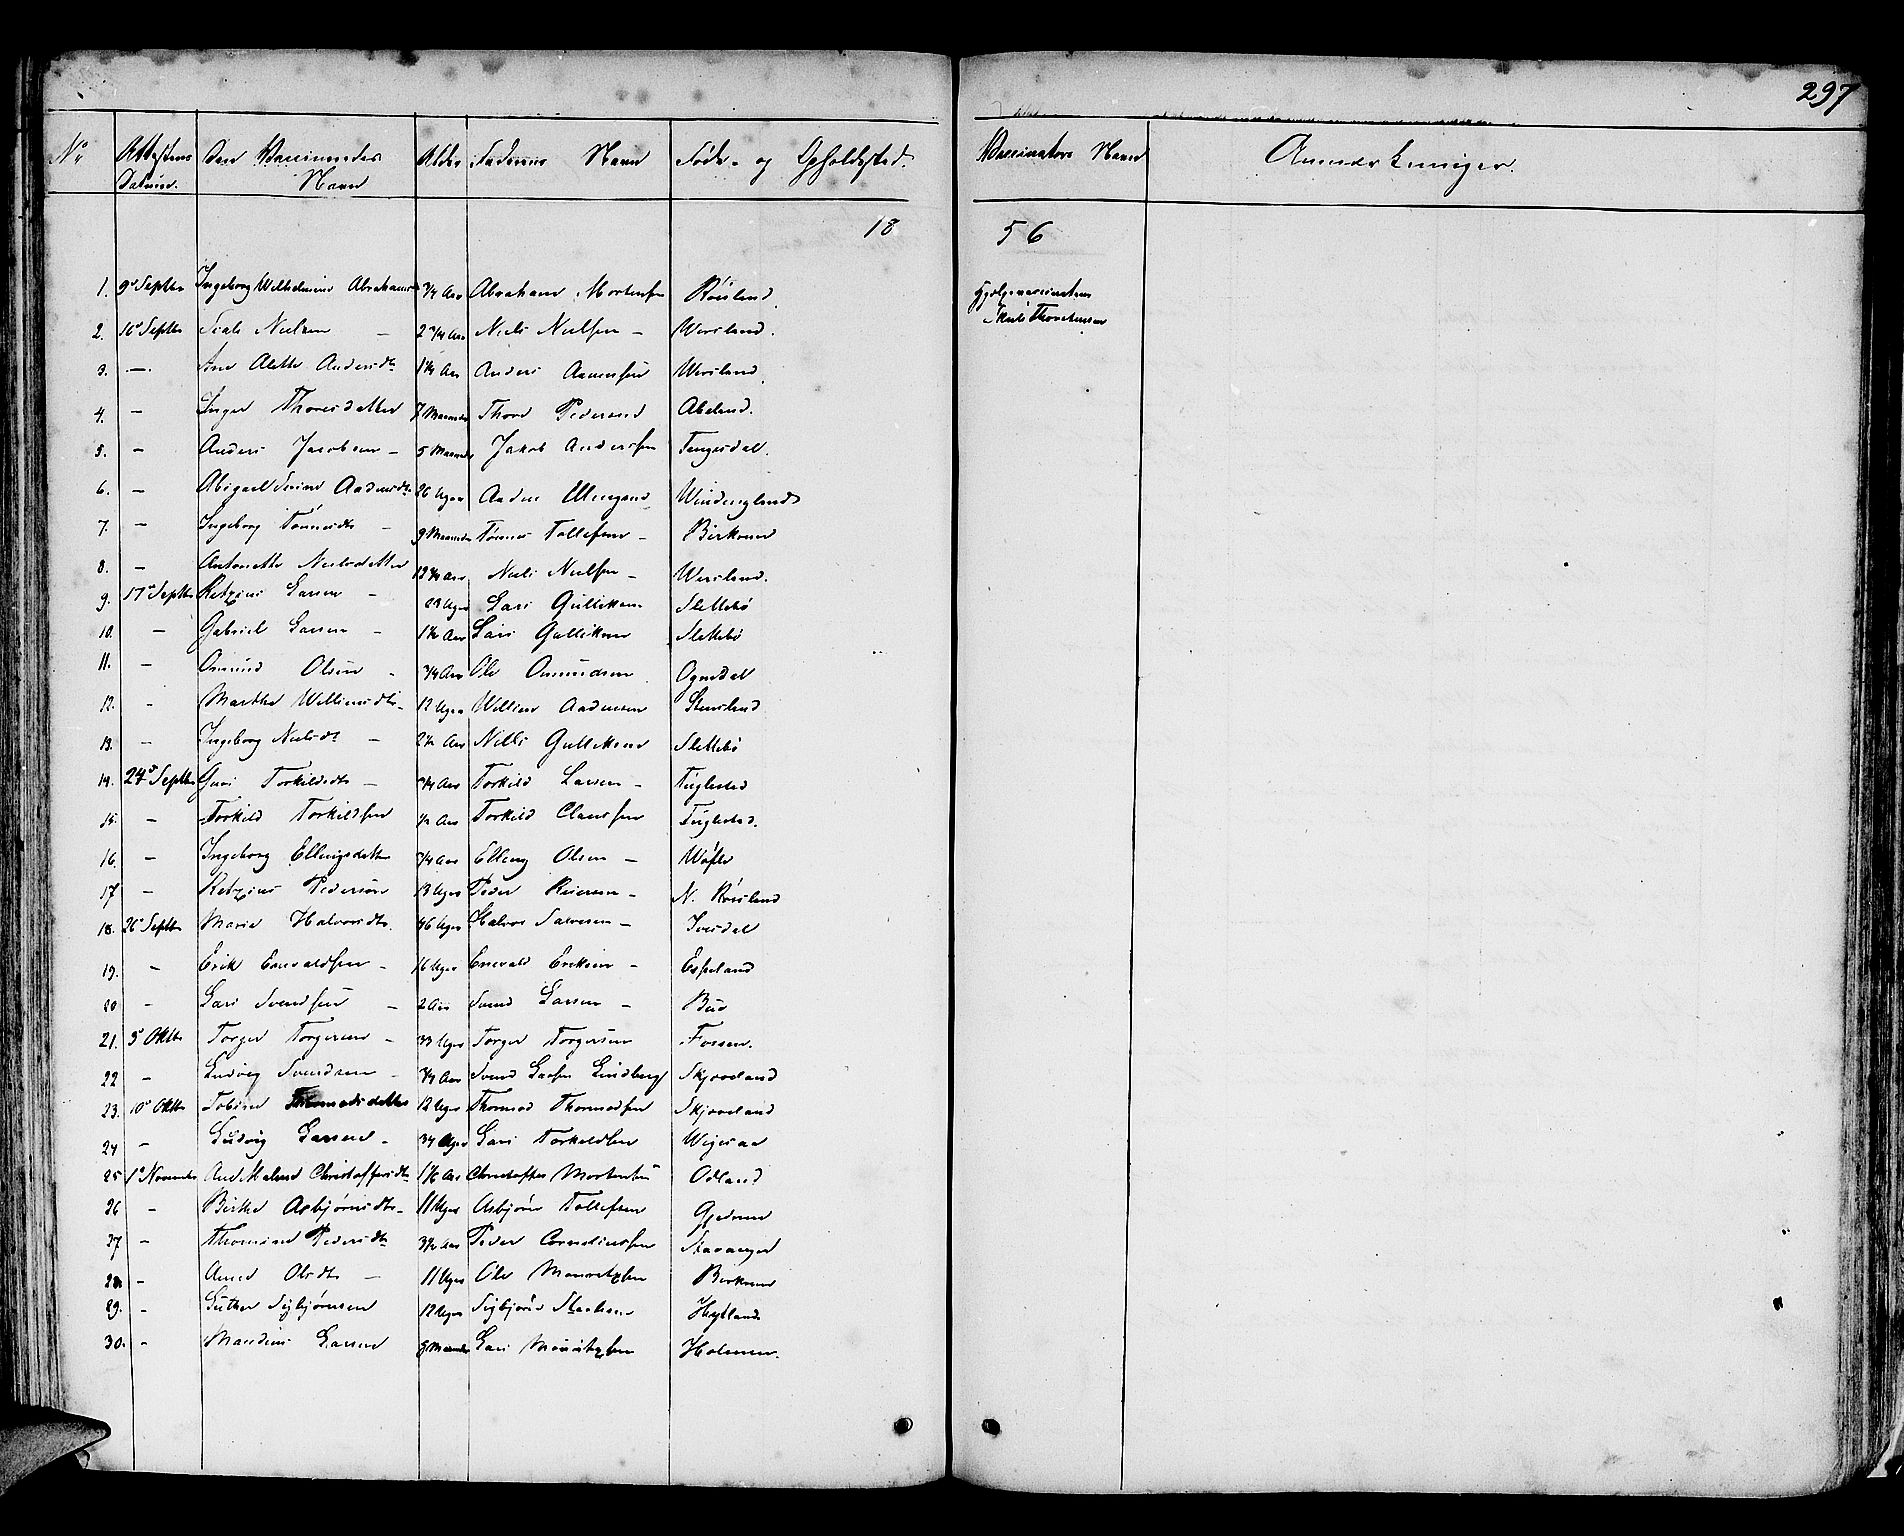 297
No Attestens Datum. Den Vaccineredes Navn Alder Faderens Navn Føde- og Opholdssted. Vaccinators Navn Anmærkninger.
1856
1. 9de Septbr Ingeborg Wilhelmine Abrahamsd 3/4 Aar Abraham Mortensen Røisland Hjelpevaccinateur
2. 10de Septbr Nielsen - 2 3/4 Aar Niels Nielsen - Wersland. Thorstensen
3. - Ane Alette Andersdtr 1 1/4 Aar Anders Wersland
4. - Inger Thoresdatter 7 Maaneder Thore Pedersen Abeland.
5. - Anders Jacobsen - 5 Maaneder Jakob Anderssen Tengesdal.
6. - Abigael Serine Aadnesdtr 26 Uger Aaden
7. - Ingeborg Tønnesdtr - 9 Maaneder Tønnes Tollefsen - Birkrem
8. - Antonette Nielsdatter 12 3/4 Aar Niels Nielsen - Wersland.
9. 17de Septbr Retzius Larsen - Uger Lars Gulliksen Slettebø
10. - Gabriel Larsen - 1 1/2 Aar Lars Gulliksen Slettebø
11. - Omund Olsen - 3/4 Aar Ole Omundsen Ognedal
12. - Marthe Williumsdtr - 12 Uger Willium Aadnesen
13. - Ingeborg Nielsdtr - 2 1/2 Aar Nills Gulliksen Slettebø
14. 24de Septbr Guri Torkildsdtr - 3/4 Aar Torkild Larsen - Fuglestad
15. - Torkild Torkildsen 1/2 Aar Torkild Claussen Fuglestad.
16. - Ingeborg Ellingsdatter 3/4 Aar Elling Olsen -
17 - Retzius Pedersen 13 Uger Peder - N. Røisland
18. 26de Septbr Marie Halvorsdtr. 46 Uger Halvor Salvesen - Ivesdal
19. - Erik Enevaldsen - 16 Uger Enevald Eriksen - Espeland
20 - Lars Svendsen - 2 Aar Svend Larsen - Bue
21. 5 Oktbr Torger Torgersen - 33 Uger Torger Torgersen Fossen.
22 - Ludvig Svendsen - 3/4 Aar Svend Larsen Lindberg Skjæveland
23. 10de Oktbr Tobine Thormodsdatter 12 Uger Thormod Thormodsen Skjæveland
24 - Ludvig Larsen - 34 Uger Lars Torkildsen
25 1ste November Ane Malene Christoffersdtr 1 1/2 Aar Christoffer Mortensen Odland
26 - Birthe Asbjørnsdtr - 11 Uger Asbjørn Tollefsen Gjedrem
27 - Thomine Pedersdtr 3 1/2 Aar Peder Corneliussen Stavanger
28 - Anne Olsdtr - 11 Uger Ole Mauritzsen Birkrem
29. - Sigbjørnsen 12 Uger Sigbjørn Hytland
30. - Mandius Larsen 9 Maaneder Lars Mauritzsen Holmen.